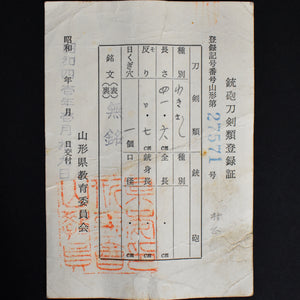 銃砲刀剣類登録証
登録記号番号山形第 27571 号
刀剣類 銃砲
種別 わきざし 種別
長さ 四一・六 cm 全長 cm
反り 〇・七 cm 銃身長 cm
目くぎ穴 一個 口径 cm
銘文 表 裏 無銘
昭和 年 月 日交付
山形県教育委員会